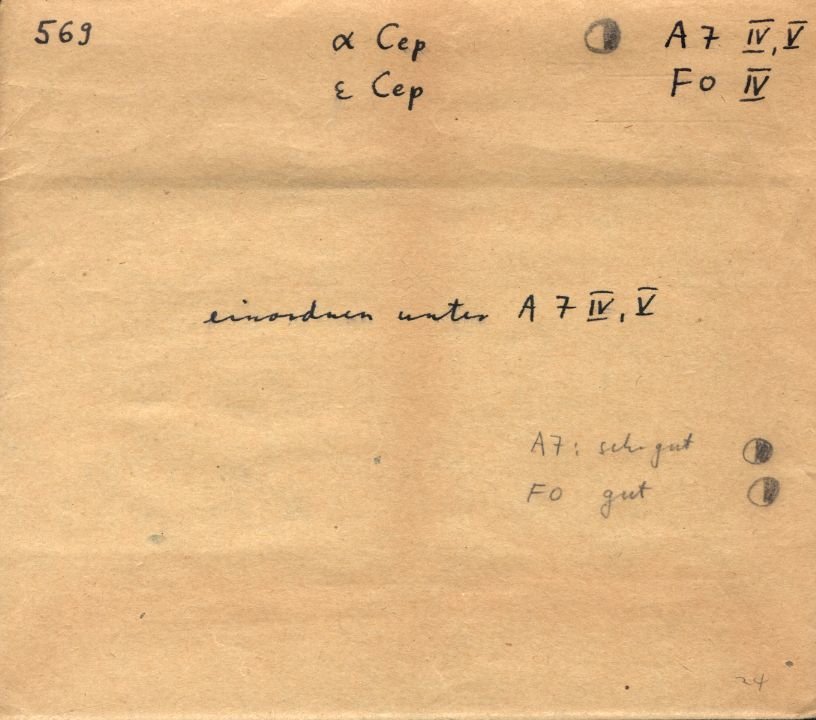 569 α Cep ◑ A7 IV, V
ε Cep F0 IV
einordnen unter A7 IV, V
A7: sehr gut ◑
F0 gut ◑
24